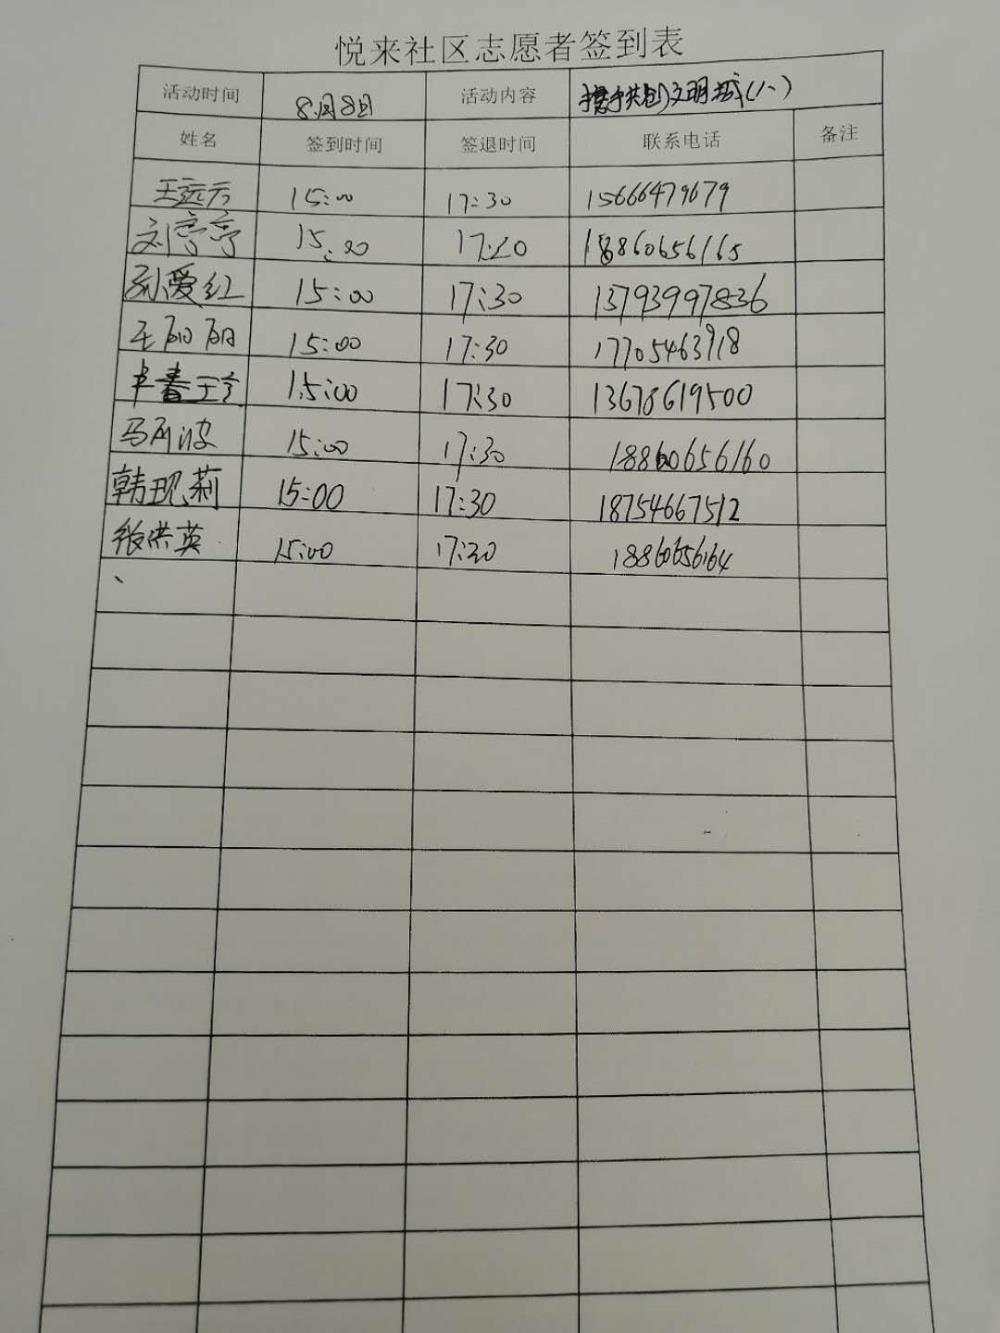 悦来社区志愿者签到表
活动时间 8月8日 活动内容 携手共创文明城(八)
姓名 签到时间 签退时间 联系电话 备注
王远方 15:00 17:30 15666479679
刘亭亭 15:00 17:20 18860656165
孙爱红 15:00 17:30 13793997836
王丽丽 15:00 17:30 17705463918
15:00 17:30 13678619500
马丽波 15:00 17:30 18860656160
韩现莉 15:00 17:30 18754667512
张洪英 15:00 17:20 18860656164